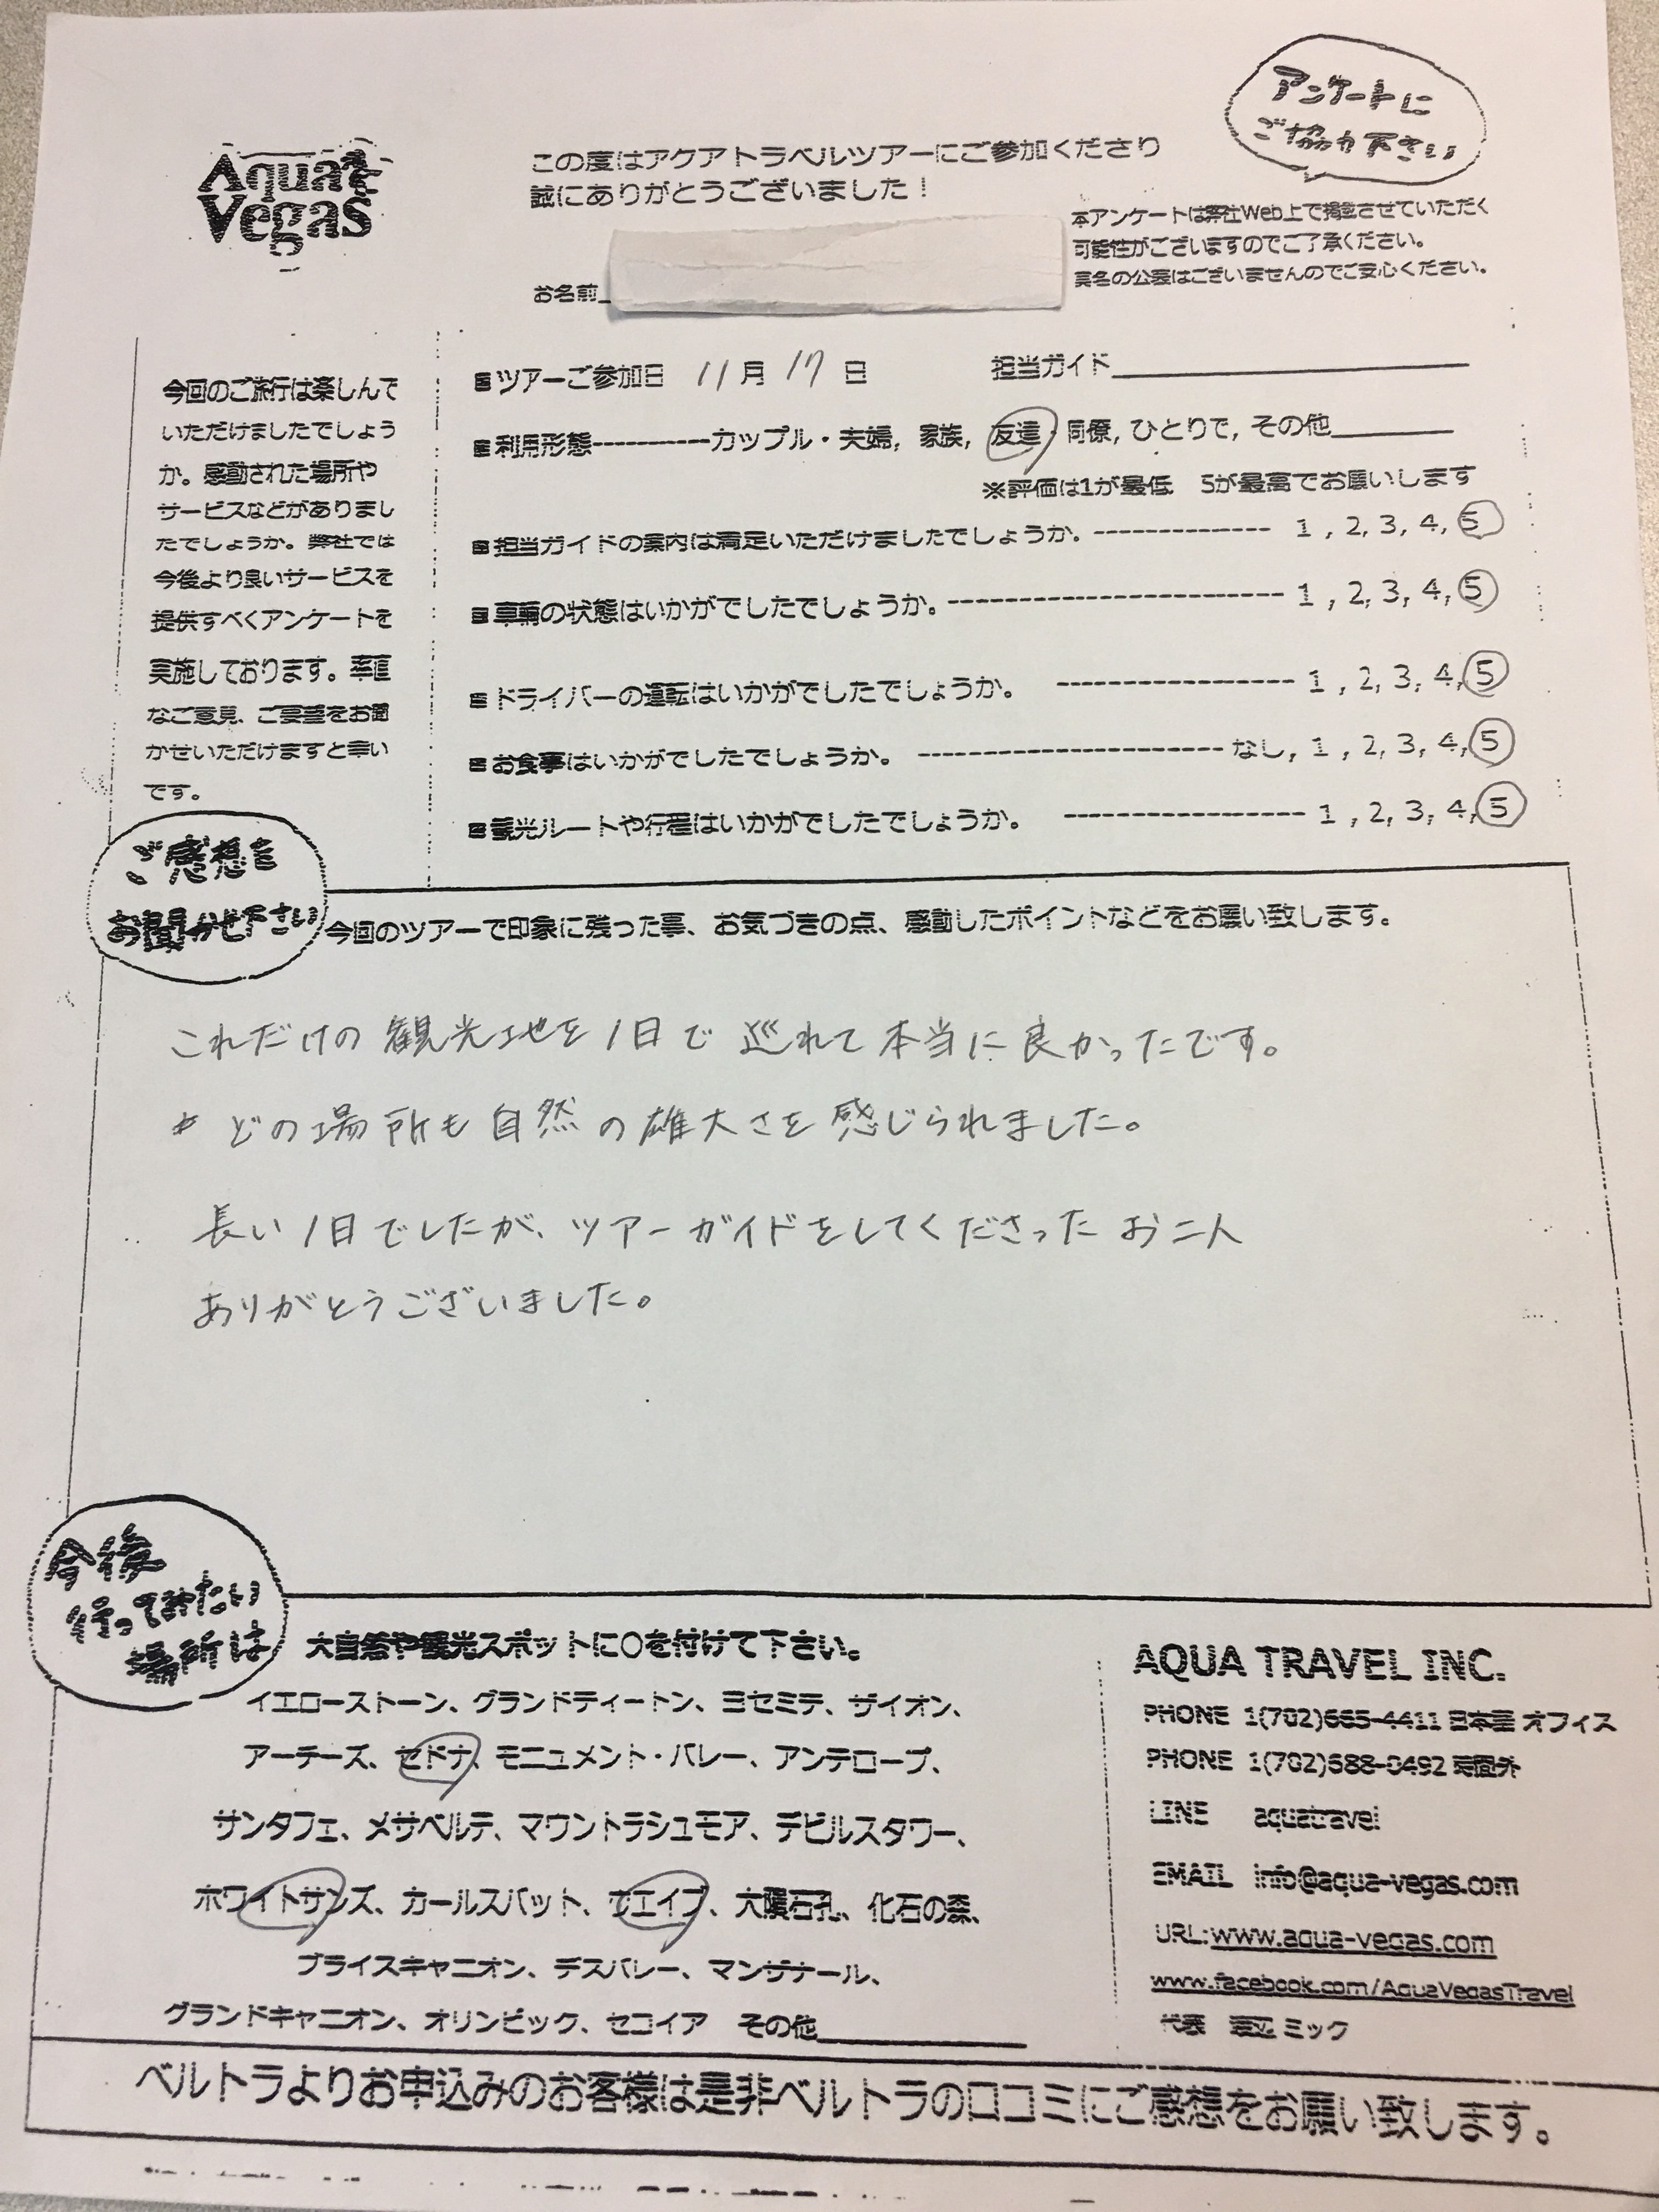 アンケートに
ご協力下さい
Aqua
Vegas
この度はアクアトラベルツアーにご参加くださり
誠にありがとうございました！
本アンケートは弊社Web上で掲載させていただく
可能性がございますのでご了承ください。
実名の公表はございませんのでご安心ください。
お名前
今回のご旅行は楽しんで
いただけましたでしょう
か。感動された場所や
サービスなどがありまし
たでしょうか。弊社では
今後より良いサービスを
提供すべくアンケートを
実施しております。率直
なご意見、ご要望をお聞
かせいただけますと幸い
です。
ツアーご参加日 11月 17日 担当ガイド
利用形態----------カップル・夫婦, 家族, 友達, 同僚, ひとりで, その他
※評価は1が最低 5が最高でお願いします
担当ガイドの案内は満足いただけましたでしょうか。------------- 1 , 2, 3, 4, 5
車輌の状態はいかがでしたでしょうか。------------------------ 1 , 2, 3, 4, 5
ドライバーの運転はいかがでしたでしょうか。 ----------------- 1 , 2, 3, 4, 5
お食事はいかがでしたでしょうか。 ---------------------- なし, 1 , 2, 3, 4, 5
観光ルートや行程はいかがでしたでしょうか。 ----------------- 1 , 2, 3, 4, 5
ご感想を
お聞かせ下さい
今回のツアーで印象に残った事、お気づきの点、感動したポイントなどをお願い致します。
これだけの観光地を1日で巡れて本当に良かったです。
どの場所も自然の雄大さを感じられました。
長い1日でしたが、ツアーガイドをしてくださったお二人
ありがとうございました。
今後
行ってみたい
場所は
大自然や観光スポットに○を付けて下さい。
イエローストーン、グランドティートン、ヨセミテ、ザイオン、
アーチーズ、セドナ、モニュメント・バレー、アンテロープ、
サンタフェ、メサベルデ、マウントラシュモア、デビルスタワー、
ホワイトサンズ、カールスバット、ザエイブ、大隕石孔、化石の森、
ブライスキャニオン、デスバレー、マンザナール、
グランドキャニオン、オリンピック、セコイア その他
AQUA TRAVEL INC.
PHONE 1(702)665-4411 日本語オフィス
PHONE 1(702)588-0492 時間外
LINE aquatravel
EMAIL info@aqua-vegas.com
URL:www.aqua-vegas.com
www.facebook.com/AquaVegasTravel
代表 渡辺 ミック
ベルトラよりお申込みのお客様は是非ベルトラの口コミにご感想をお願い致します。